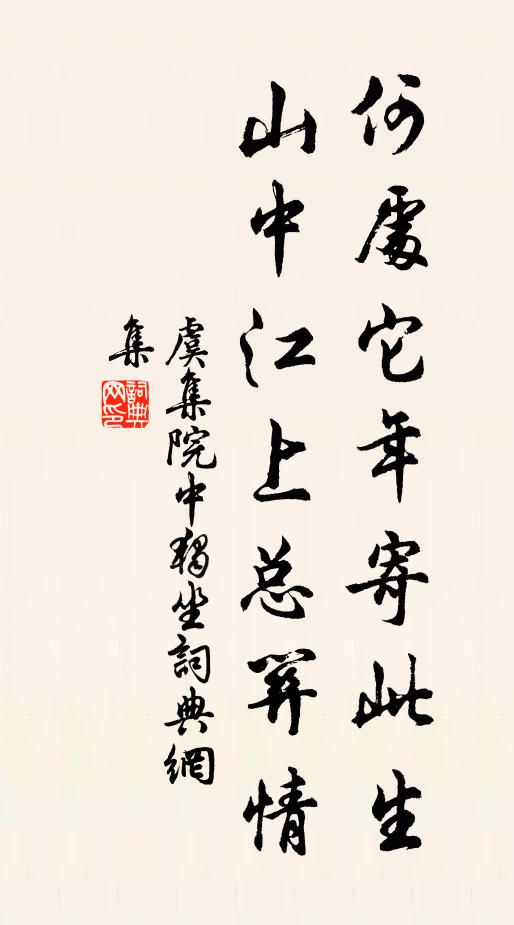 何處它年寄此生
山中江上总關情
虞集院中獨坐詞典網
集
詞典網印